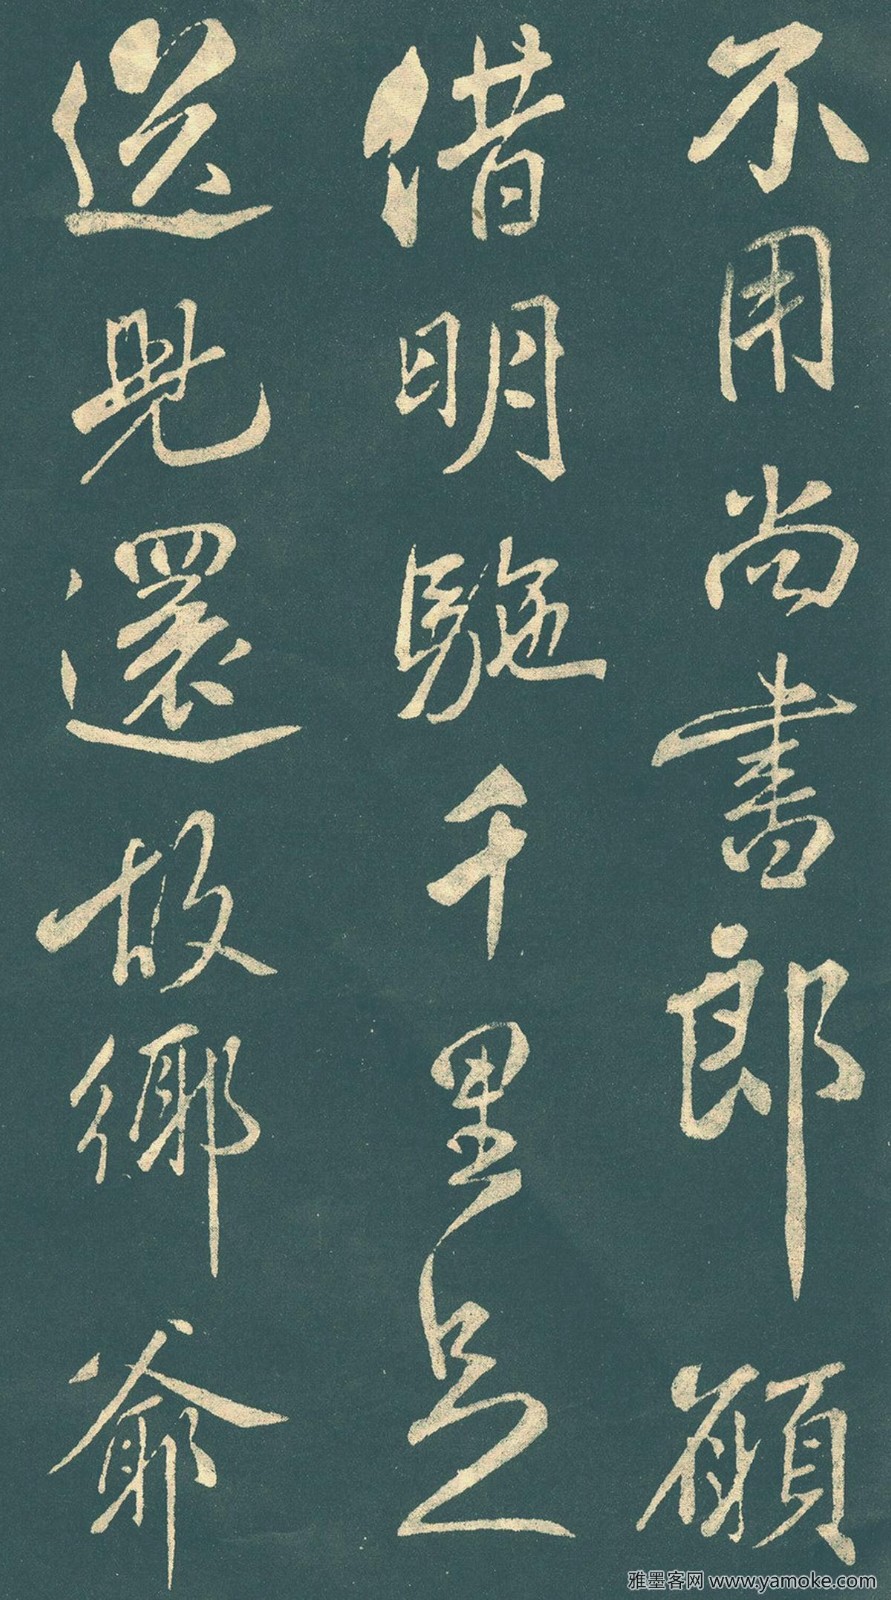 不用尚書郎願
借明駞千里足
送兒還故鄉爺
雅墨客网 www.yamoke.com